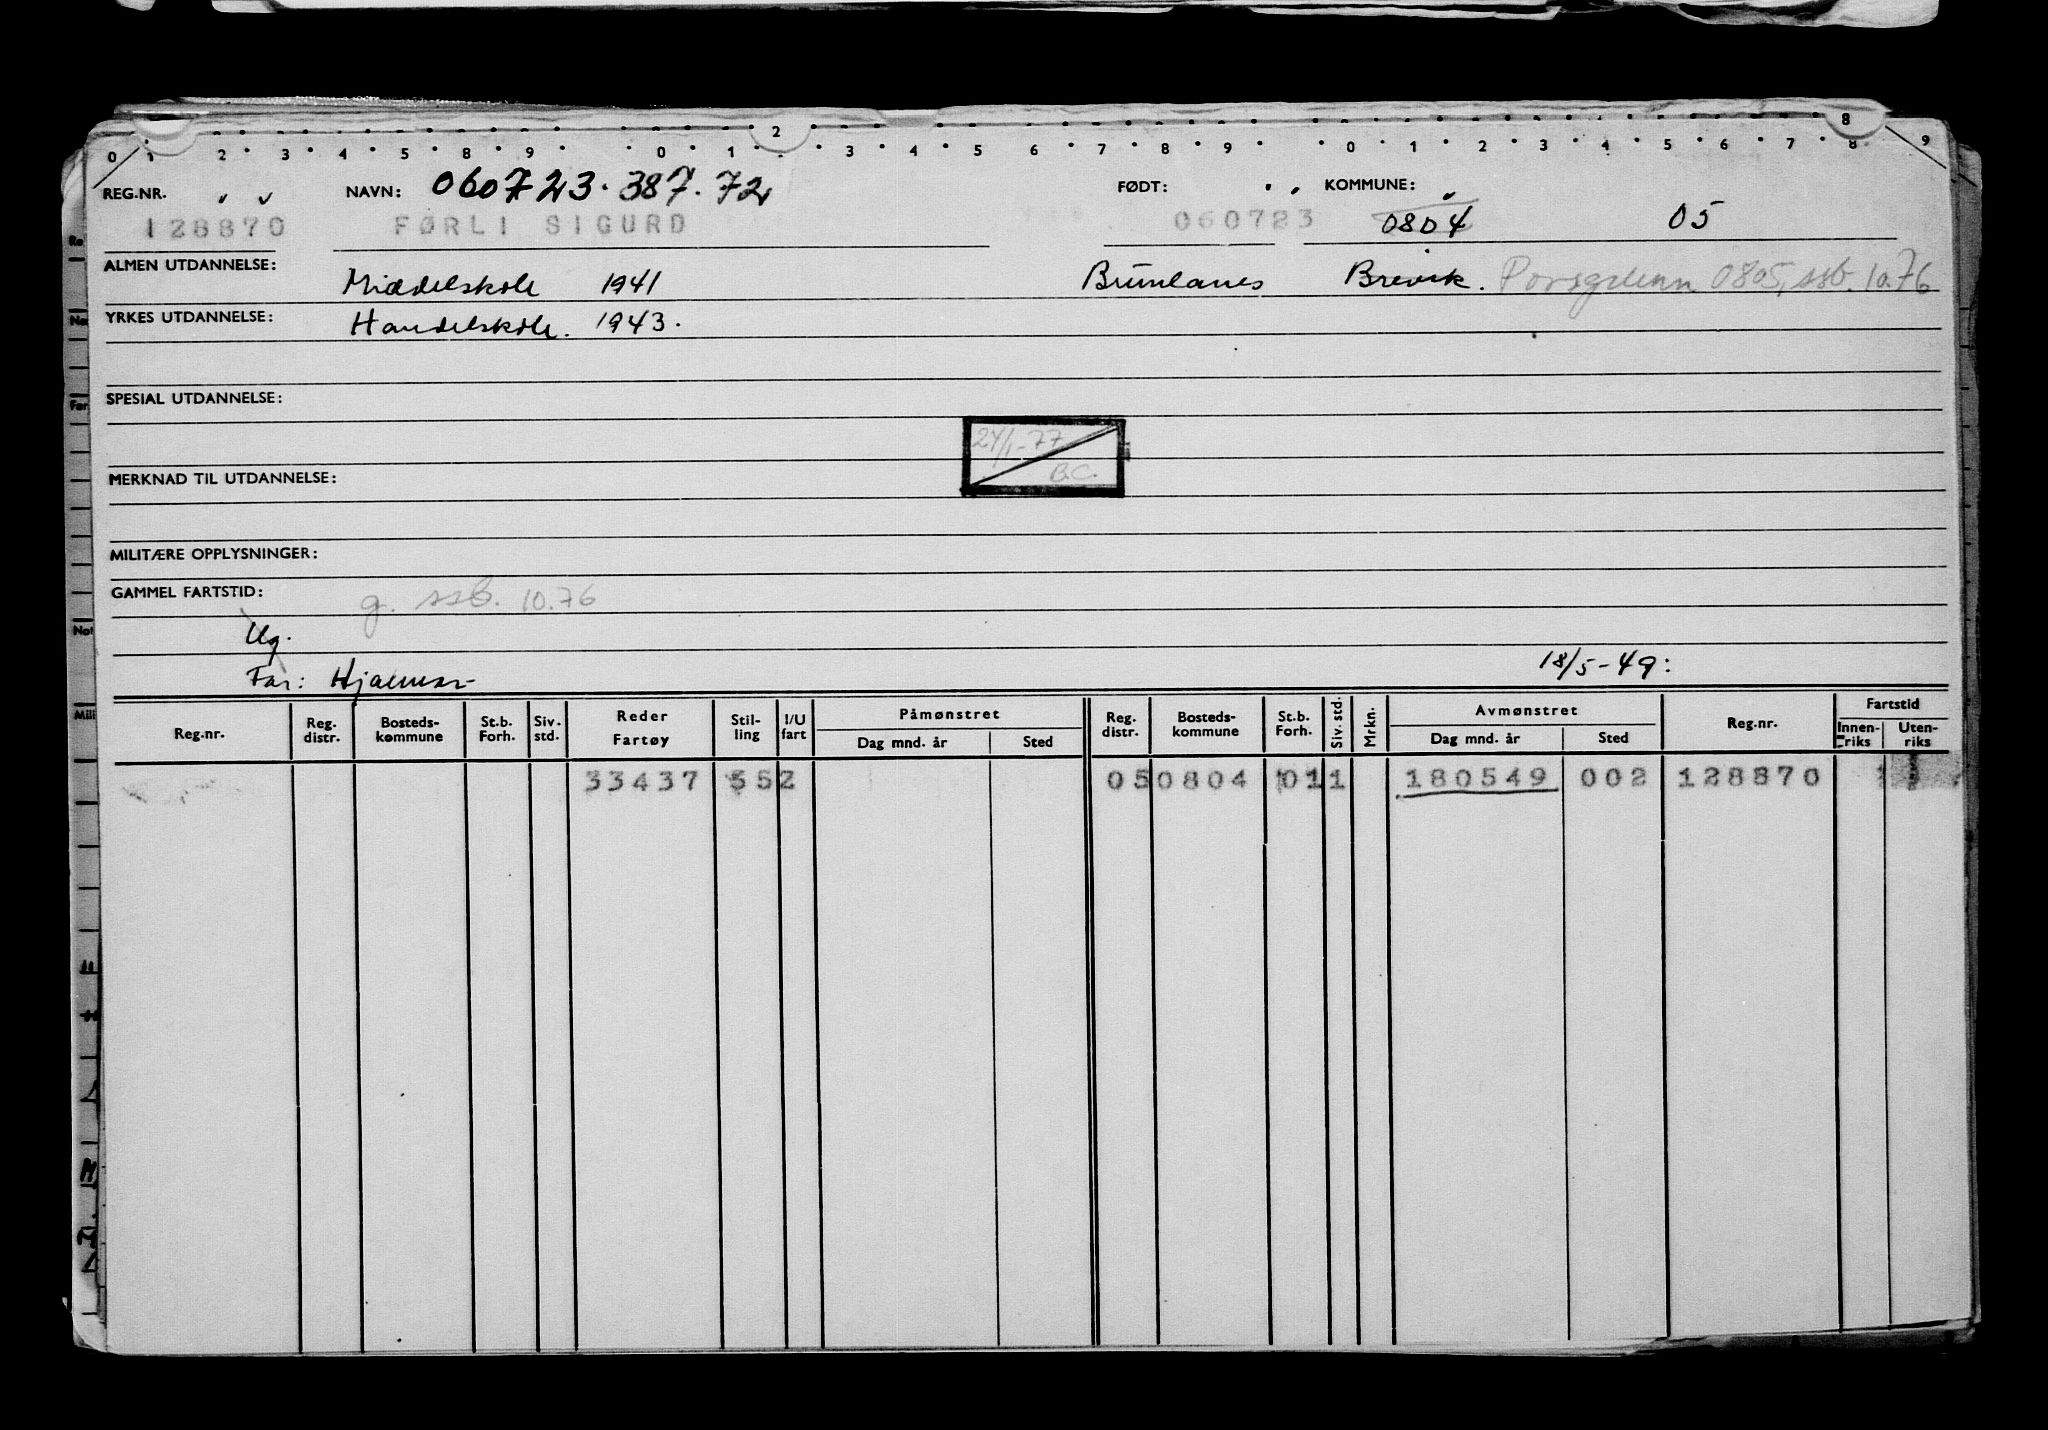 0 1 2 3 4 5 6 7 8 9 0 1 2 3 4 5 6 7 8 9 0 1 2 3 4 5 6 7 8 9
REG.NR. NAVN: 060723.387.72 FØDT: KOMMUNE:
128870 FØRLI SIGURD 060723 0804 05
ALMEN UTDANNELSE: Middelskole 1941 Brunlanes Brevik. Porsgrunn 0805, ssb. 10.76
YRKES UTDANNELSE: Handelskole. 1943.
SPESIAL UTDANNELSE:
24/1-77
B.C.
MERKNAD TIL UTDANNELSE:
MILITÆRE OPPLYSNINGER:
GAMMEL FARTSTID: g. ssb. 10.76
Ug.
Far: Hjalmar 18/5-49:
Reg.nr. Reg. distr. Bosteds-kommune St.b. Forh. Siv. std. Reder Fartøy Stil-ling I/U fart Påmønstret Dag mnd. år Sted Reg. distr. Bosteds-kommune St.b. Forh. Siv. std. Mrkn. Avmønstret Dag mnd. år Sted Reg.nr. Fartstid Innen-riks Uten-riks
33437 552 050804 011 180549 002 128870